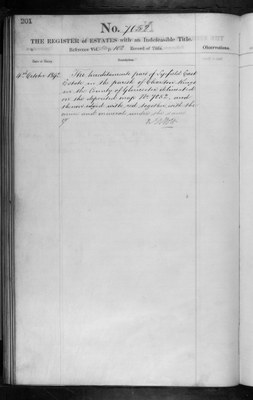 201
No. 
THE REGISTER of ESTATES with an Indefeasible Title.
Reference Vol. p. Record of Title.
Observations.
Date of Entry.
Description.
4th October 1892
The hereditaments part of East
Estate in the parish of Charlton Kings
in the County of Gloucester delineated
on the deposited map No. and
thereon edged with red together with the
mines and minerals under the same